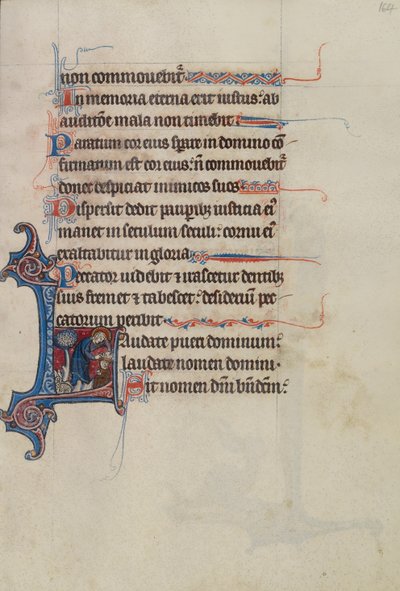 164
non commouebit᷑
In memoria eterna erit iustus: ab
auditōe mala non timebit
Paratum cor eius sperare in domino cō
firmatum est cor eius: n̄ commouebit᷑
donec despiciat inimicos suos
Dispersit dedit paupib; iusticia eiꝰ
manet in seculum seculi: cornu eiꝰ
exaltabitur in gloria
Peccator uidebit ⁊ irascetur dentib;
suis fremet ⁊ tabescet: desideriū pec
catorum peribit
Laudate pueri dominum:
laudate nomen domini.
Sit nomen dn̄i bn̄dcm̄: